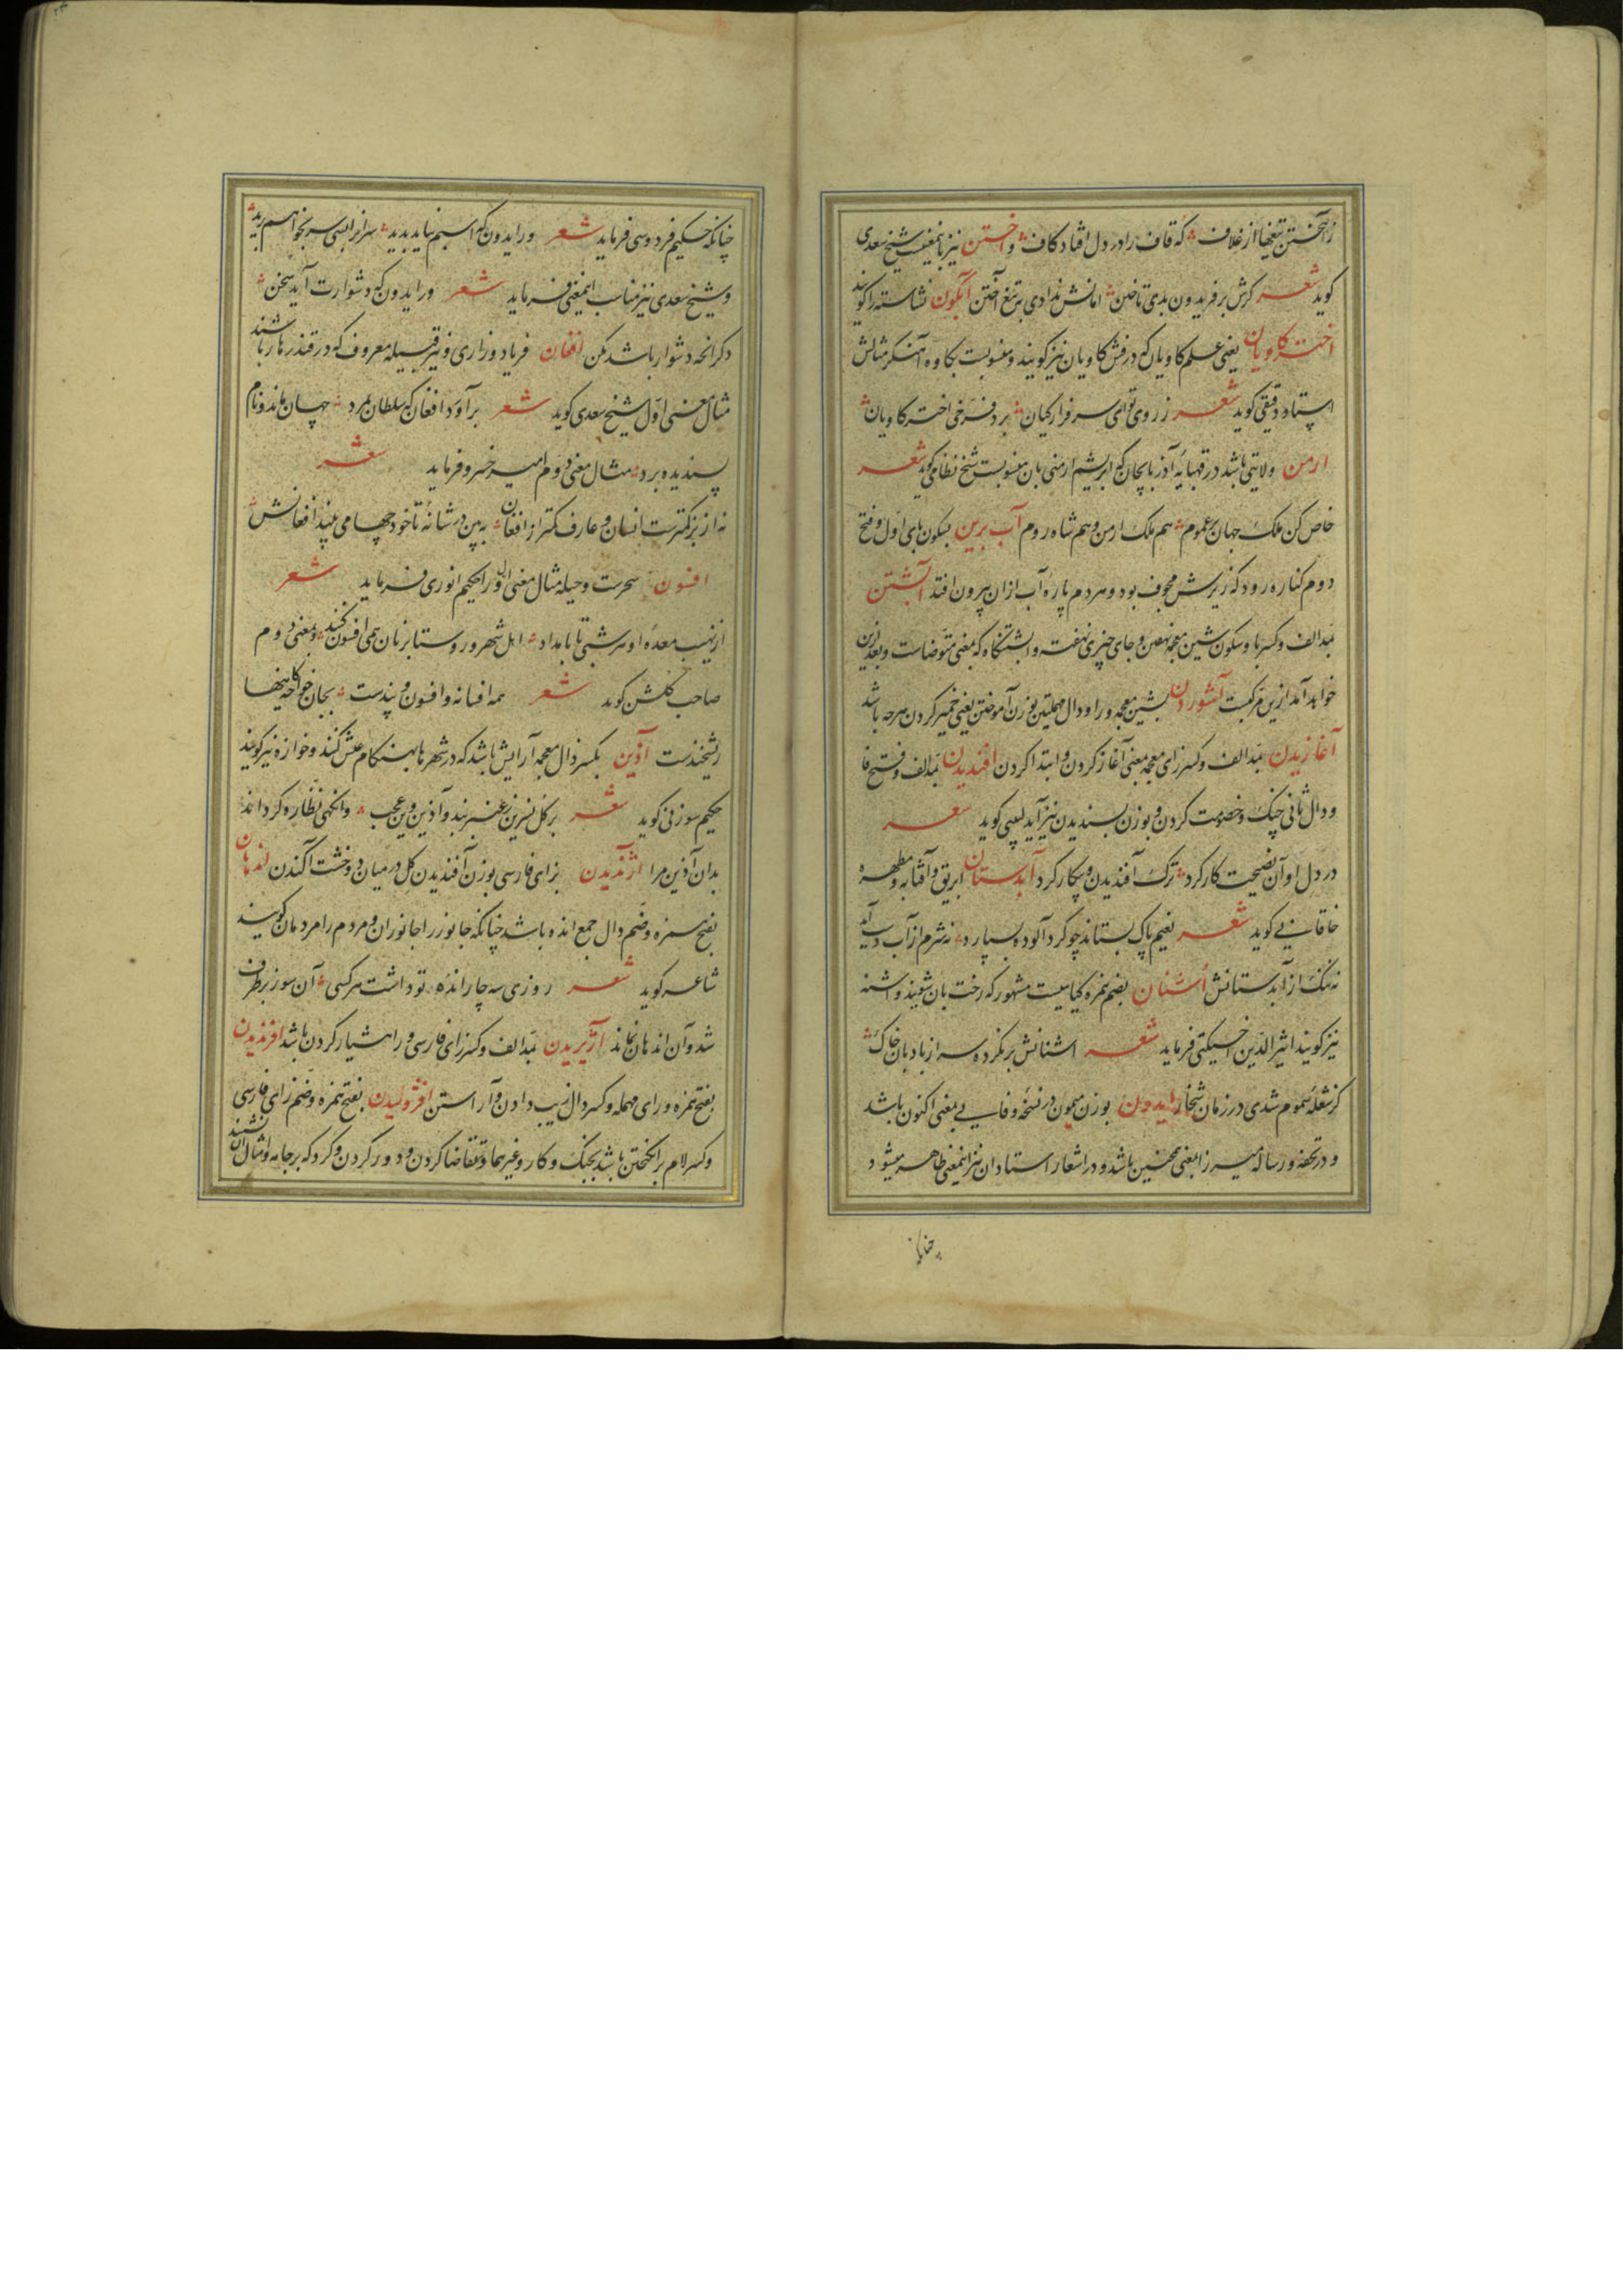 ز آهختن تیغها از غلاف که قاف را در دل افتاد کاف و آختن نیز باینمعنیست شیخ سعدی
کوید شعر کرش بر فریدون بدی تاختن امانش ندادی به تیغ آختن آبکون نشاسته را کویند
اختر کاویان یعنی علم کاویان که درفش کاویان نیز کویند و منسوبست بکاوه آهنکر مثالش
استاد دقیقی کوید شعر ز روی توای سرفراز کیان برد فرخی اختر کاویان
ارمن ولایتی باشد در آذربایجان که ابریشم ارمنی بان منسوبست شیخ نظامی کوید شعر
خاص کن ملک جهان بر عموم هم ملک ارمن و هم شاه روم آب برین بسکون بای اول و فتح
دوم کناره رود که زیرش مجوف بود و هر دم پاره آب ازان بیرون افتد آبشتن
بمد الف و کسر با و سکون شین معجمه نهفتن و جای چیزی نهفته و ابشتنکاه که بمعنی متوضاست و بعد ازین
خواهد آمد ازین مرکبست آشوردن بشین معجمه و را و دال مهملتین بوزن آموختن یعنی خمیر کردن هرچه باشد
آغازیدن بمد الف و کسر زای معجمه بمعنی آغاز کردن و ابتدا کردن آفندیدن بمد الف و فتح فا
و دال ثانی جنک و خصومت کردن و بوزن بسندیدن نیز آید لبیبی کوید شعر
در دل او آن نصیحت کار کرد ترک آفندیدن و پیکار کرد آبدستان ابریق و آفتابه و مطهره
خاقانی کوید شعر نعیم پاک بستاند چو کرد آلوده بسپارد نه شرم از آب دست آید
نه ننک از آبدستانش اشنان بضم همزه کیاهیست مشهور که رخت بان شویند و اشنه
نیز کویند اثیر الدین اخسیکتی فرماید شعر اشنانش بر نکرده سر از بادبان خاک
کز شعله سموم شدی در زمان شخار ایدون بوزن میمون در نسخه وفایی بمعنی اکنون باشد
و در تحفه و رساله میرزا بمعنی همچنین باشد و در اشعار استادان نیز اینمعنی ظاهر میشود
چنانکه
چنانکه حکیم فردوسی فرماید شعر ور ایدون که اسبم نیاید بدید سران را بسی سر بخواهم برید
و شیخ سعدی نیز مناسب اینمعنی فرماید شعر ور ایدون که دشوارت آید سخن
دکر انچه دشوار باشد مکن افغان فریاد و زاری و نیز قبیله معروف که در قندهار باشند
مثال معنی اول شیخ سعدی کوید شعر برآورد افغان که سلطان بمرد جهان ماند و نام
پسندیده برد مثال معنی دوم امیر خسرو فرماید شعر
نه از بز کمترست انسان و عارف کمتر از افغان به بین در شانه تا خود چها می بیند افغانش
افسون سحرست و حیله مثال معنی اول را حکیم انوری فرماید شعر
از نهیب معده او هر شبی تا بامداد اهل شهر و روستا بر نان همی افسون کنند و بمعنی دوم
صاحب کلشن کوید شعر همه افسانه و افسون و پندست بجان خواجه کاینها
ریشخندست آذین بکسر ذال معجمه آرایش باشد که در شهرها بهنکام عیش کنند و خوازه نیز کویند
حکیم سوزنی کوید شعر بر کل نسرین ز عنبر بندد آذین وین عجب وانکهی نظاره کرداند
بدان آذین مرا آژندیدن بزای فارسی بوزن آفندیدن کل در میان دو خشت آکندن اندهان
بفتح همزه و ضم دال جمع انده باشد چنانکه جانور را جانوران و مردم را مردمان کویند
شاعر کوید شعر روزی سه چار انده تو داشت هر کسی آن سوز بر طرف
شد و آن اندهان نماند آژیریدن بمد الف و کسر زای فارسی و را هشیار کردن باشد افرندیدن
بفتح همزه و رای مهمله و کسر دال زیب دادن و آراستن افژولیدن بفتح همزه و ضم زای فارسی
و کسر لام برانکیختن باشد بجنک و کار و غیرهما و تقاضا کردن و دور کردن و کرد که بر جامه و امثال آن نشیند